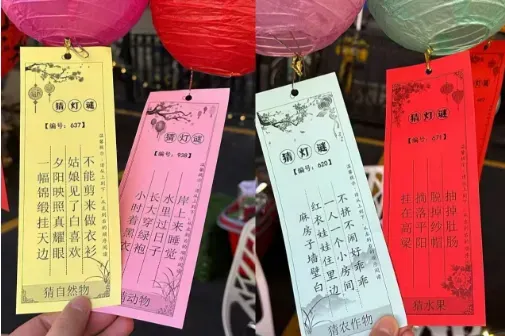 猜灯谜
【编号：637】
一幅锦缎挂天边
夕阳映照真耀眼
姑娘见了白喜欢
不能剪来做衣衫
猜自然物
猜灯谜
【编号：938】
小时着黑衣
长大穿绿袍
水里过日子
岸上来睡觉
动物
猜灯谜
【编号：620】
麻房子墙壁白
红衣娃娃住里边
一人一个小房间
不挤不闹好乖乖
猜农作物
猜灯谜
【编号：671】
挂在高梁
摘落平阳
脱掉纱帽
抽掉肚肠
猜水果